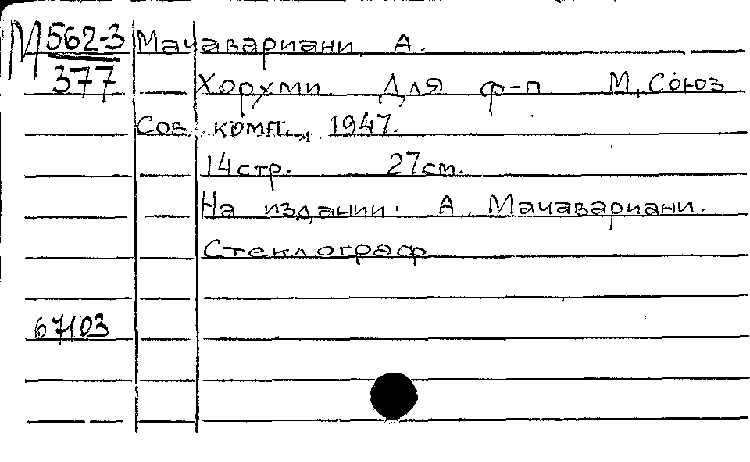 М 562-3 Мачавариани, А.
377 Хорхми. Для ф-п М., Союз
Сов. комп., 1947.
14 стр. 27 см.
На издании: А. Мачавариани.
Стеклограф
67103